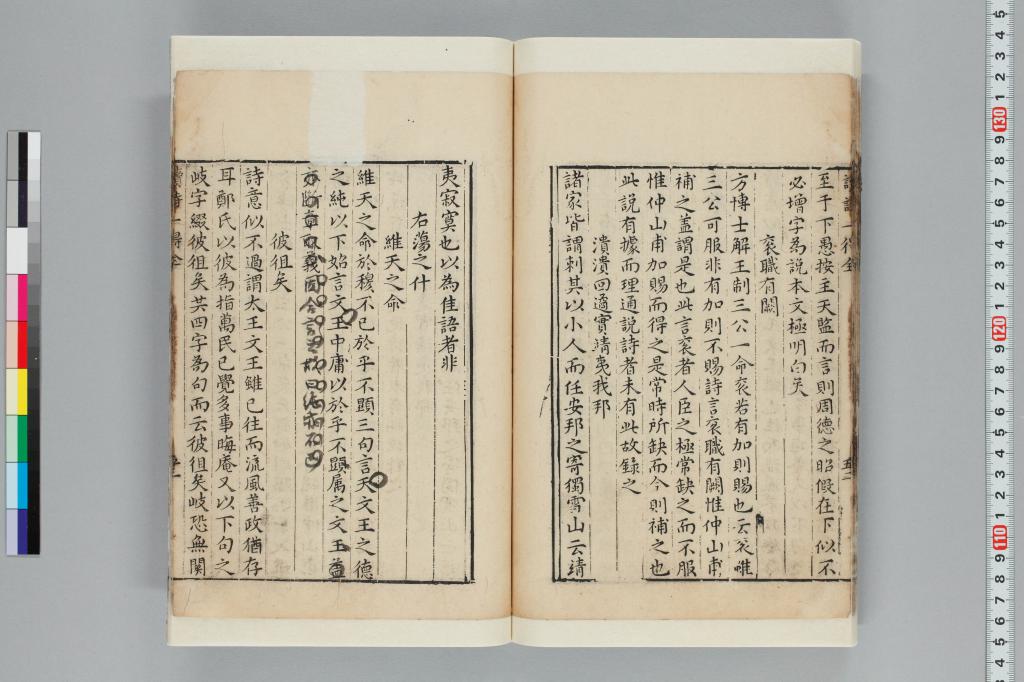 至于下愚按主天監而言則周德之昭假在下似不
必增字為說本文極明白矣
袞職有闕
方博士解王制三公一命袞若有加則賜也云袞唯
三公可服非有加則不賜詩言袞職有闕惟仲山甫
補之蓋謂是也此言袞者人臣之極常缺之而不服
惟仲山甫加賜而得之是常時所缺而今則補之也
此說有據而理通說詩者未有此故錄之
潰潰回遹實靖夷我邦
諸家皆謂刺其以小人而任安邦之寄獨雪山云靖
夷寂寞也以為佳語者非
右蕩之什
維天之命
維天之命於穆不已於乎不顯三句言天文王之德
之純以下始言文王中庸以於乎不顯属之文王蓋
亦斷章取義
彼徂矣
詩意似不過謂太王文王雖已往而流風善政猶存
耳鄭氏以彼為指萬民已覺多事晦庵又以下句之
岐字綴彼徂矣共四字為句而云彼徂矣岐恐無関